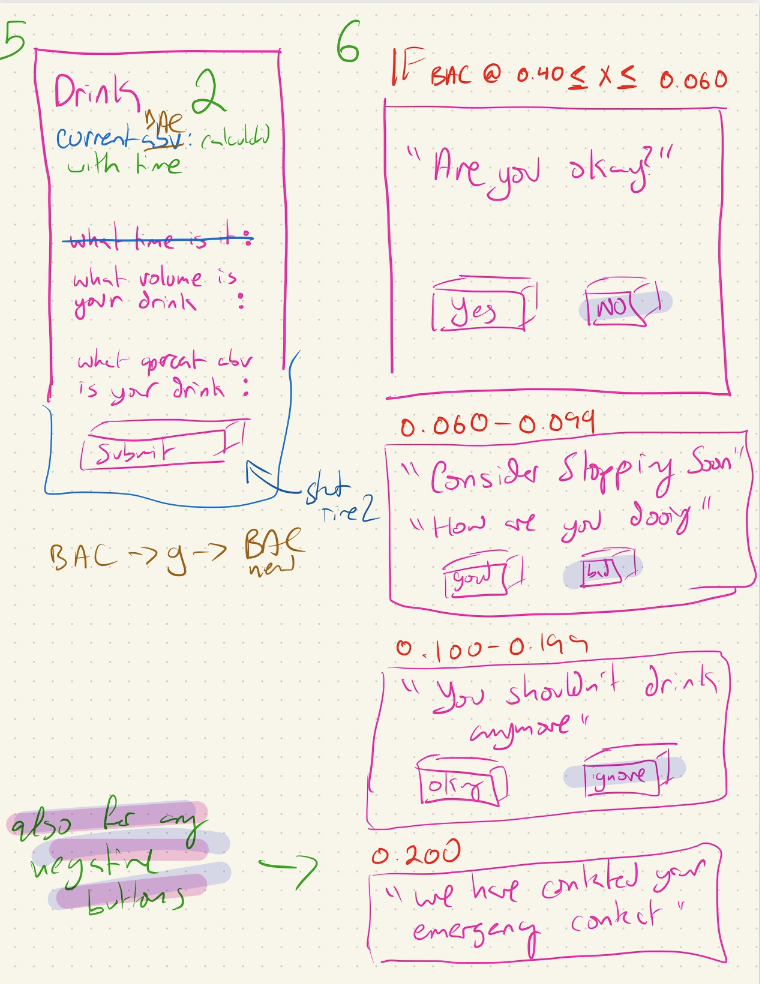 5
Drink 2
BAC
current abv: calculated
with time
what time is it :
what volume is
your drink :
what percent abv
is your drink :
Submit
start
time 2
BAC → g → BAC
new
also for any
negative
buttons
6
IF BAC @ 0.40 ≤ X ≤ 0.060
"Are you okay?"
Yes
NO
0.060 - 0.099
"Consider Stopping Soon"
"How are you doing"
good
bad
0.100 - 0.199
"You shouldn't drink
anymore"
okay
ignore
0.200
"we have contacted your
emergency contact"